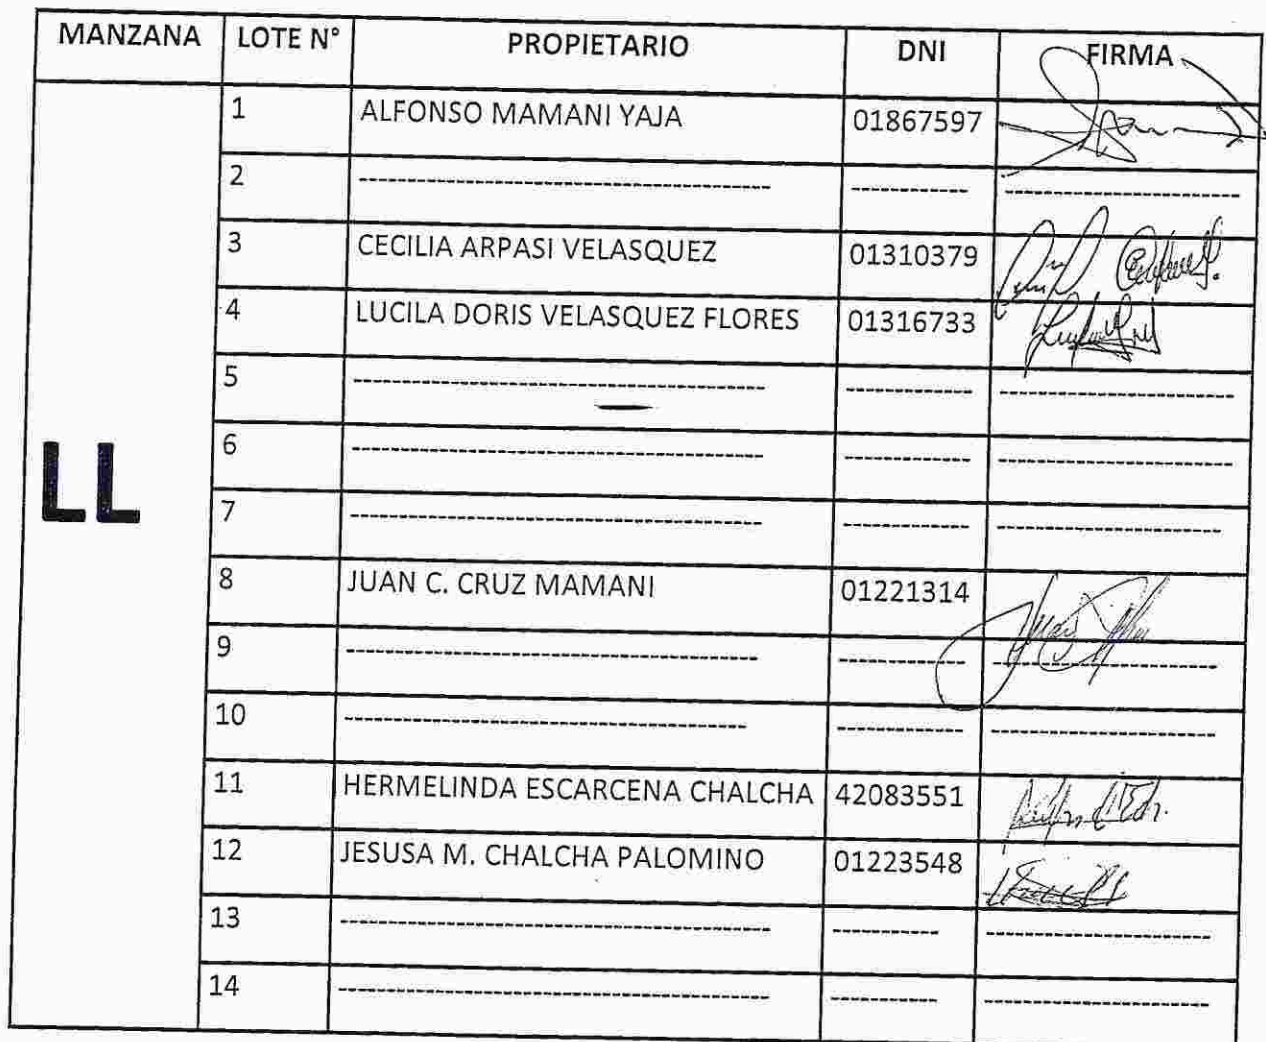 MANZANA LOTE N° PROPIETARIO DNI FIRMA
1 ALFONSO MAMANI YAJA 01867597
2 ---------- ---------- ----------
3 CECILIA ARPASI VELASQUEZ 01310379
4 LUCILA DORIS VELASQUEZ FLORES 01316733
5 ---------- ---------- ----------
6 ---------- ---------- ----------
LL
7 ---------- ---------- ----------
8 JUAN C. CRUZ MAMANI 01221314
9 ---------- ---------- ----------
10 ---------- ---------- ----------
11 HERMELINDA ESCARCENA CHALCHA 42083551
12 JESUSA M. CHALCHA PALOMINO 01223548
13 ---------- ---------- ----------
14 ---------- ---------- ----------